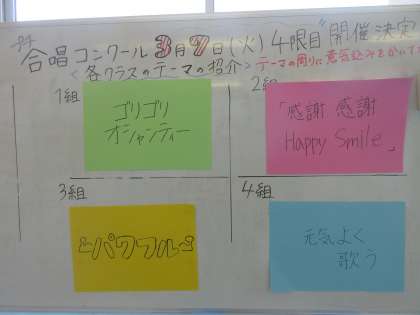 合唱コンクール 3月7日(火) 4限目"開催決定
<各クラスのテーマの紹介> テーマの周りに意気込みをかいて
1組
ゴリゴリ
オシャンティー
2組
「感謝 感謝
Happy Smile」
3組
パワフル
4組
元気よく
歌う